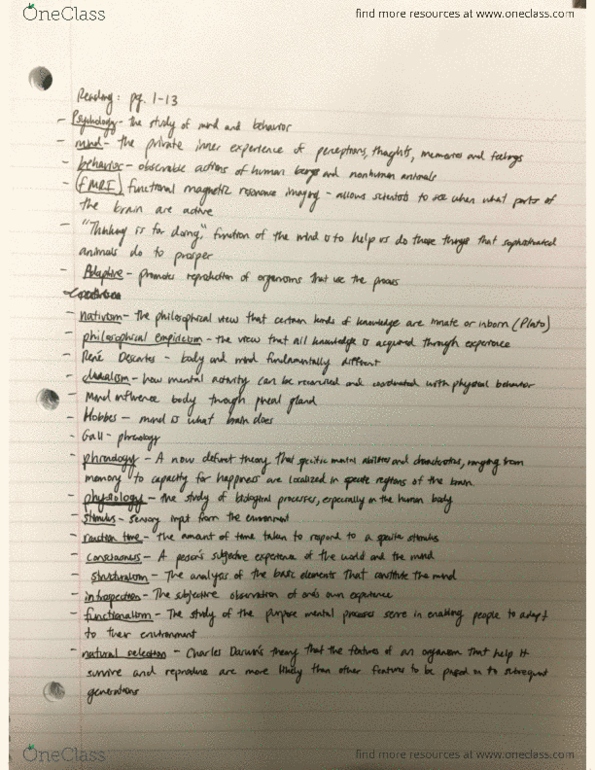 OneClass
find more resources at www.oneclass.com
Reading: pg. 1-13
- Psychology - the study of mind and behavior
- mind - the private inner experience of perceptions, thoughts, memories and feelings
- behavior - observable actions of human beings and nonhuman animals
- (fMRI) functional magnetic resonance imaging - allows scientists to see when what parts of
the brain are active
- "Thinking is for doing," function of the mind is to help us do those things that sophisticated
animals do to prosper
- Adaptive - promotes reproduction of organisms that use the process
- nativism - the philosophical view that certain kinds of knowledge are innate or inborn (Plato)
- philosophical empiricism - the view that all knowledge is acquired through experience
- René Descartes - body and mind fundamentally different
- dualism - how mental activity can be reconciled and coordinated with physical behavior
- Mind influence body through pineal gland
- Hobbes - mind is what brain does
- Gall - phrenology
- phrenology - A now defunct theory that specific mental abilities and characteristics, ranging from
memory to capacity for happiness are localized in specific regions of the brain
- physiology - the study of biological processes, especially in the human body
- stimulus - sensory input from the environment
- reaction time - the amount of time taken to respond to a specific stimulus
- consciousness - A person's subjective experience of the world and the mind
- structuralism - The analysis of the basic elements that constitute the mind
- introspection - The subjective observation of one's own experience
- functionalism - The study of the purpose mental processes serve in enabling people to adapt
to their environment
- natural selection - Charles Darwin's theory that the features of an organism that help it
survive and reproduce are more likely than other features to be passed on to subsequent
generations
OneClass
find more resources at www.oneclass.com